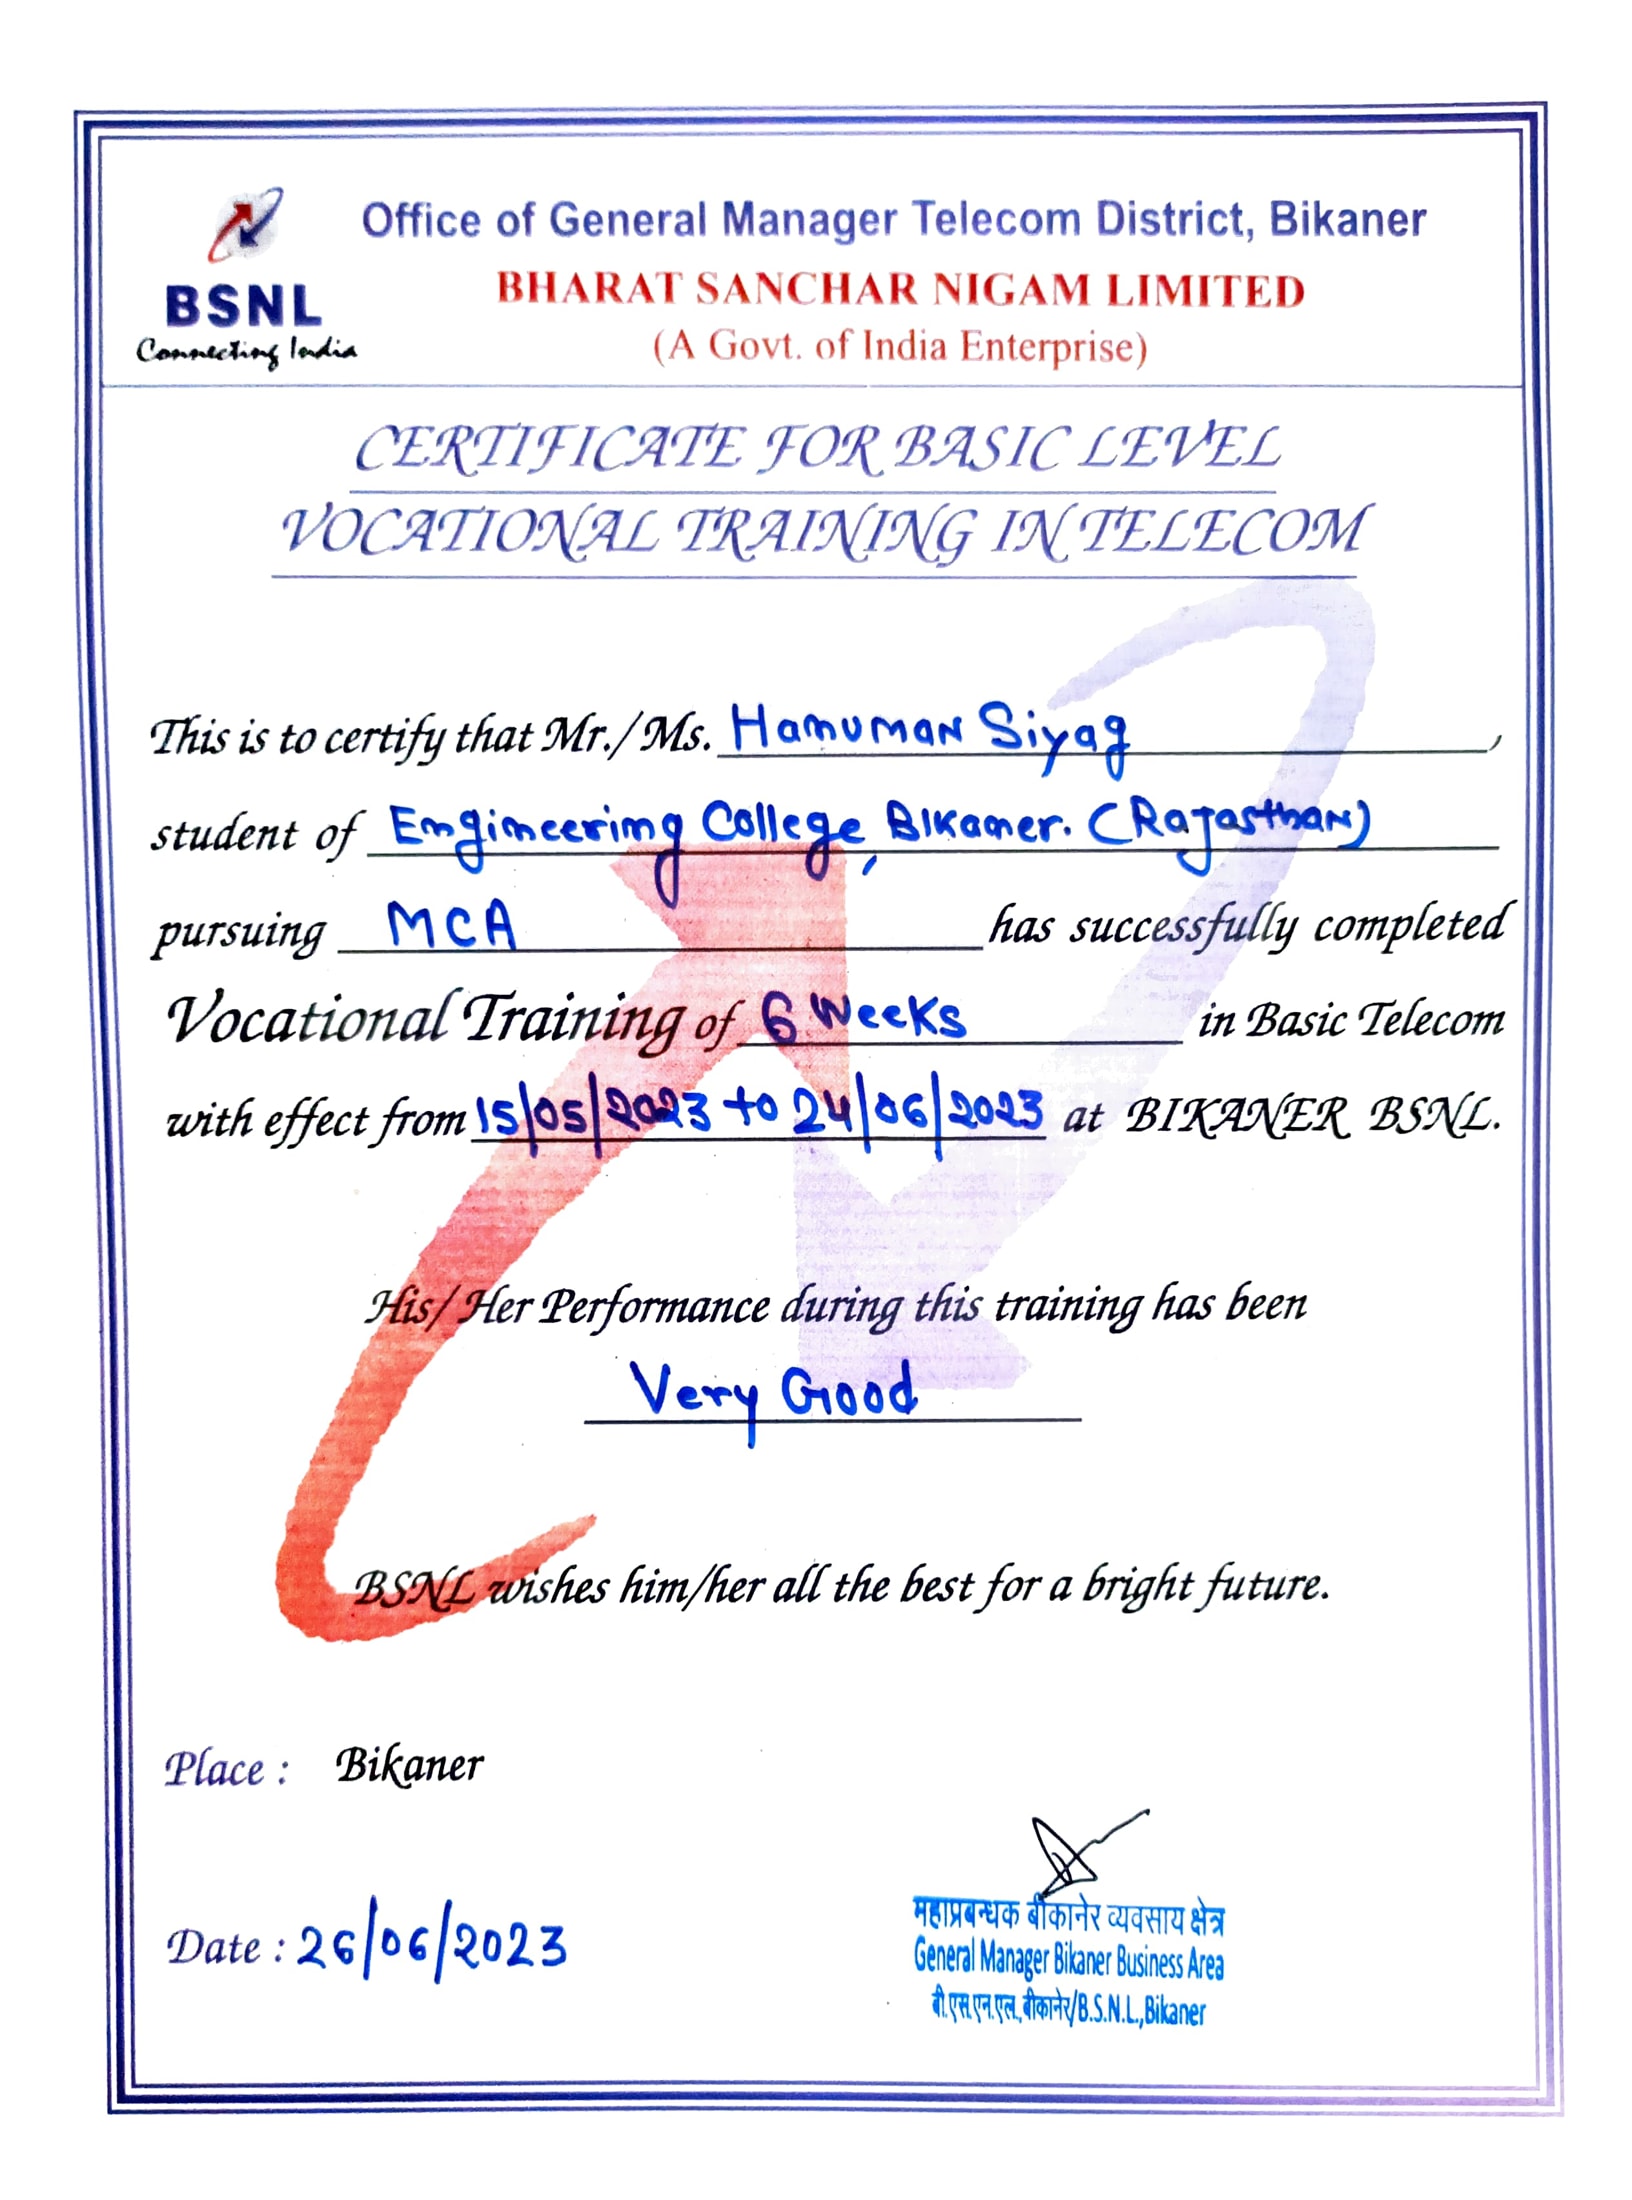 Office of General Manager Telecom District, Bikaner
BHARAT SANCHAR NIGAM LIMITED
(A Govt. of India Enterprise)
BSNL
Connecting India
CERTIFICATE FOR BASIC LEVEL
VOCATIONAL TRAINING IN TELECOM
This is to certify that Mr./Ms. Hanuman Siyag,
student of Engineering College, Bikaner. (Rajasthan)
pursuing MCA has successfully completed
Vocational Training of 6 Weeks in Basic Telecom
with effect from 15/05/2023 to 24/06/2023 at BIKANER BSNL.
His/Her Performance during this training has been
Very Good
BSNL wishes him/her all the best for a bright future.
Place : Bikaner
Date : 26/06/2023
महाप्रबन्धक बीकानेर व्यवसाय क्षेत्र
General Manager Bikaner Business Area
बी.एस.एन.एल.,बीकानेर/B.S.N.L.,Bikaner